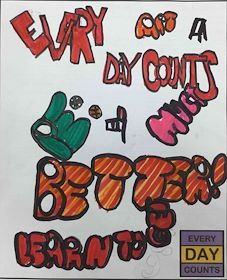 EVERY
A
DAY COUNTS
MUCH
BETTER!
LEARN TO
EVERY
DAY
COUNTS